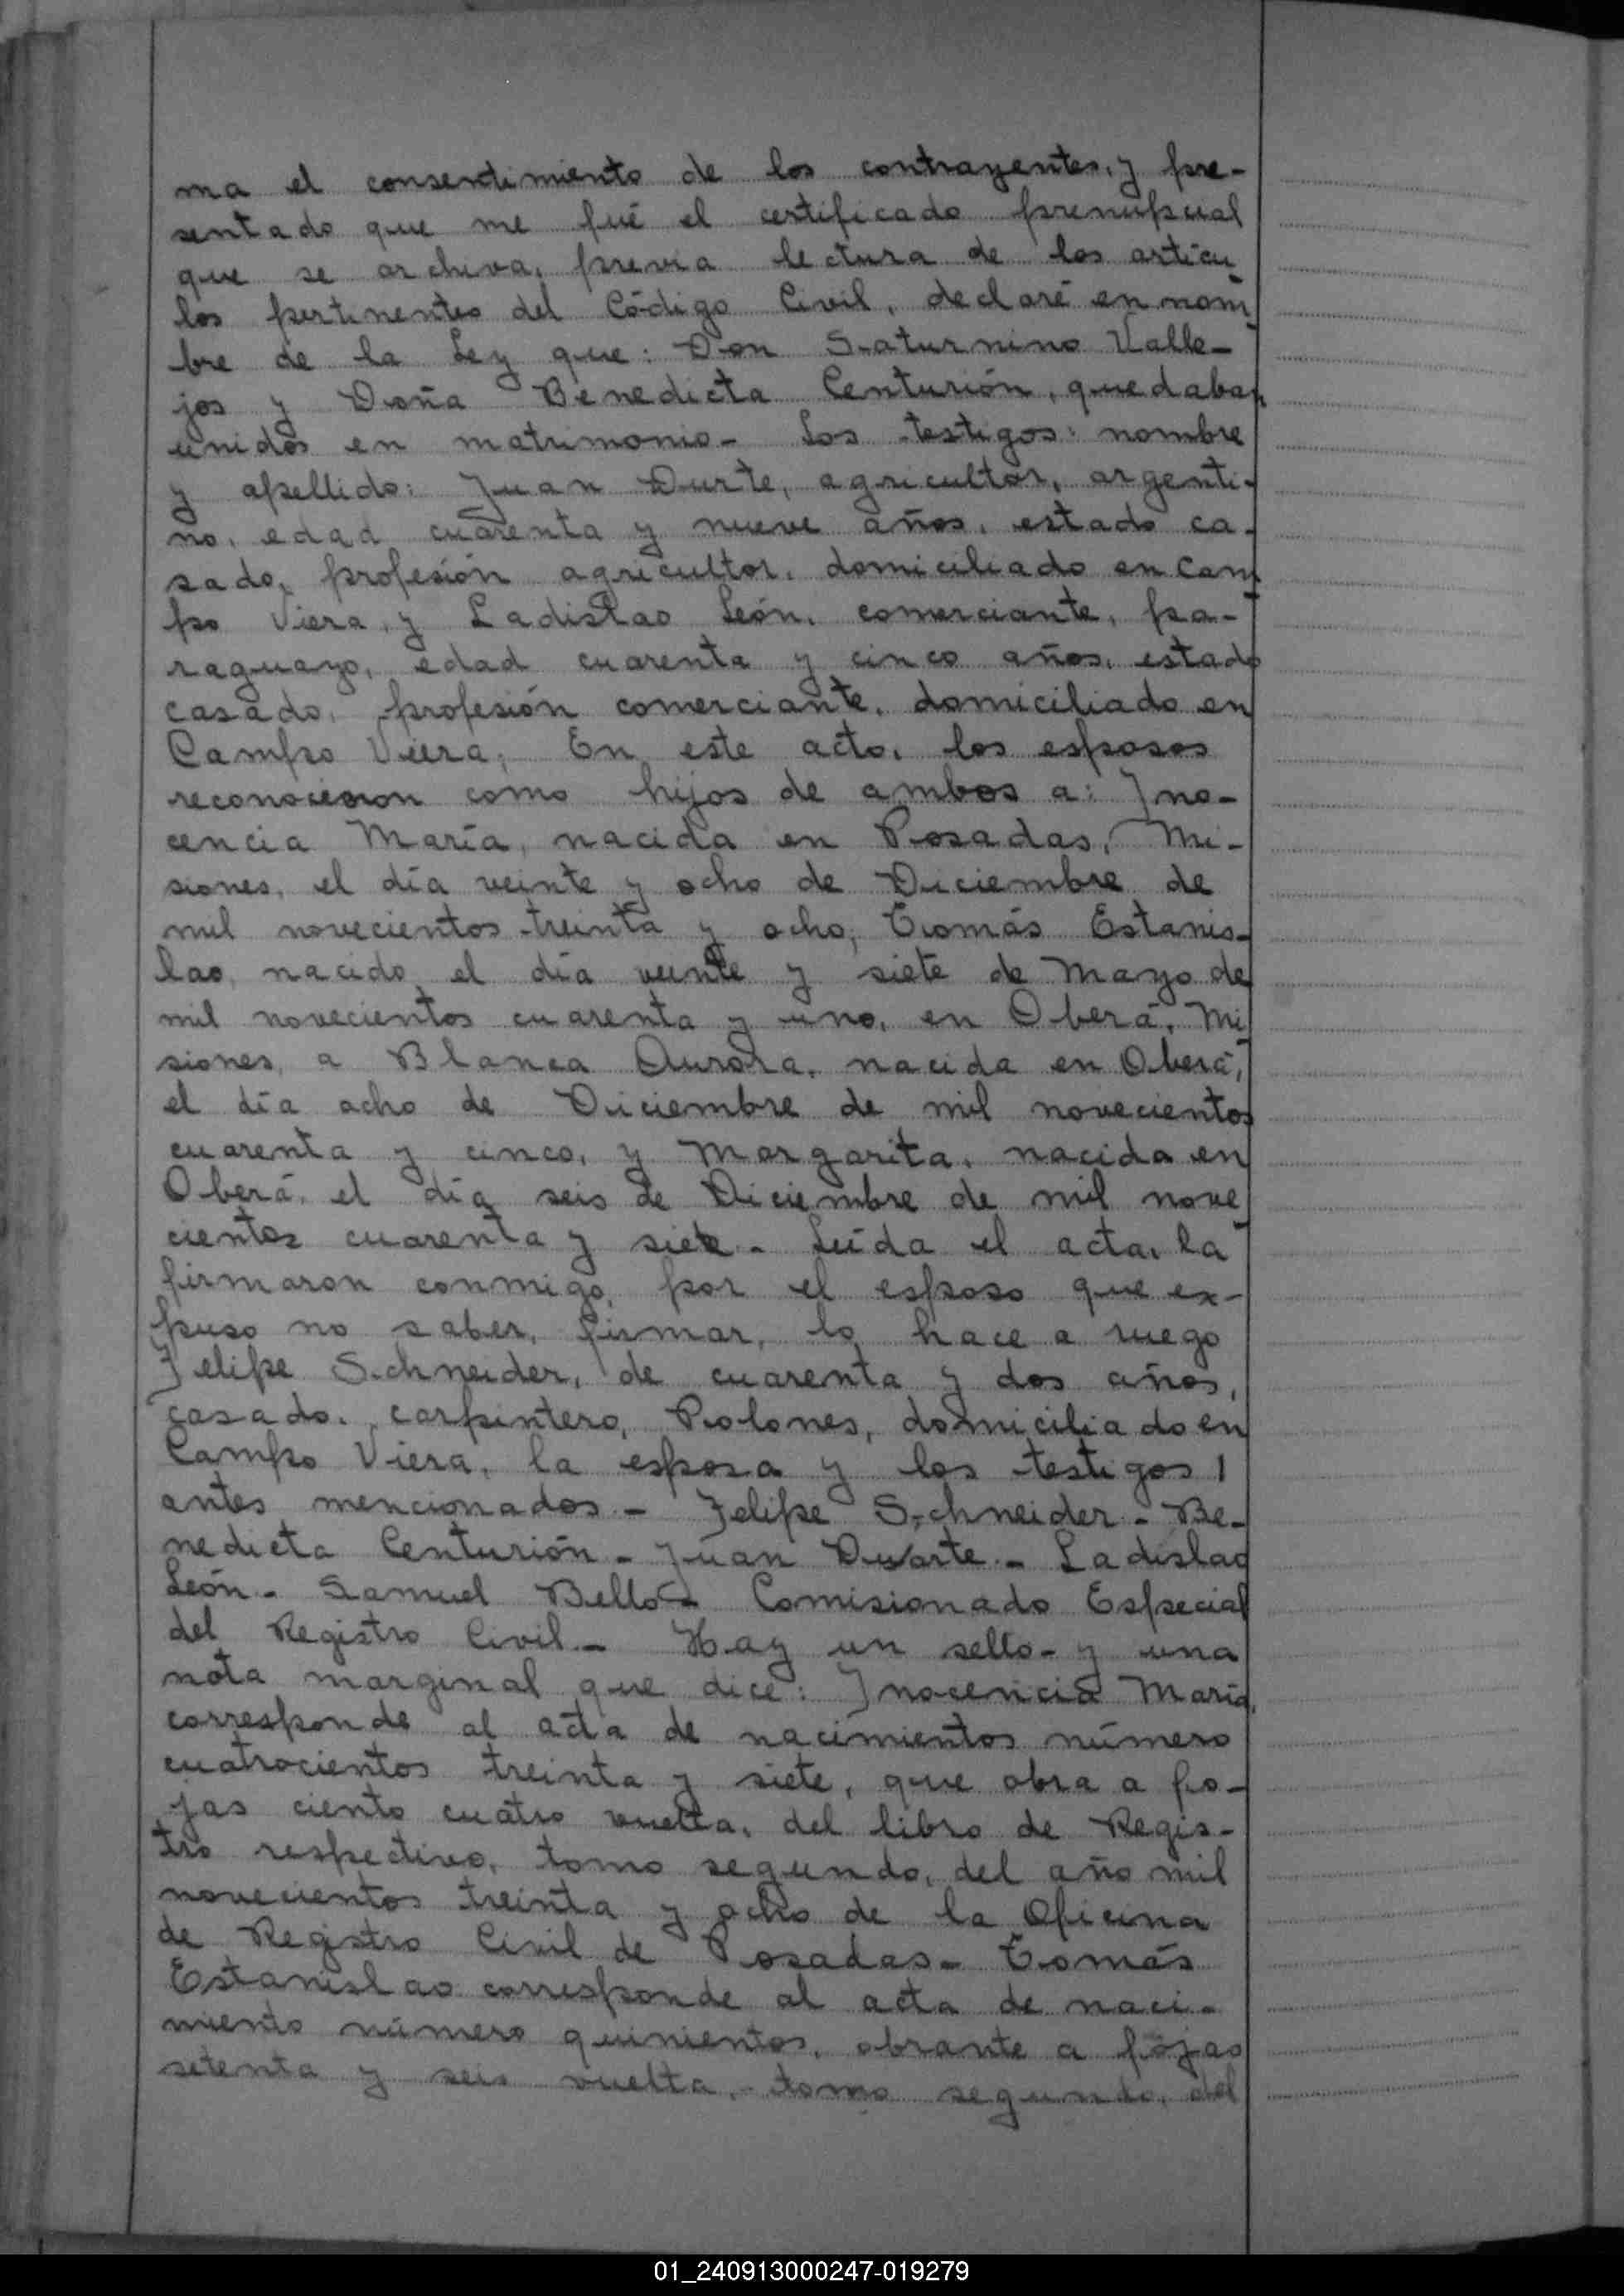 ma el consentimiento de los contrayentes, y pre-
sentado que me fué el certificado prenupcial
que se archiva, previa lectura de los artícu-
los pertinentes del Código Civil, declaré en nom-
bre de la Ley que: Don Saturnino Valle-
jos y Doña Benedicta Centurión, quedaban
unidos en matrimonio - Los testigos: nombre
y apellido: Juan Durte, agricultor, argenti-
no, edad cuarenta y nueve años, estado ca-
sado, profesión agricultor, domiciliado en Cam-
po Viera, y Ladislao León, comerciante, pa-
raguayo, edad cuarenta y cinco años, estado
casado, profesión comerciante, domiciliado en
Campo Viera; En este acto, los esposos
reconocieron como hijos de ambos a: Ino-
cencia María, nacida en Posadas, Mi-
siones, el día veinte y ocho de Diciembre de
mil novecientos treinta y ocho, Tomás Estanis-
lao, nacido el día veinte y siete de Mayo de
mil novecientos cuarenta y uno, en Oberá, Mi
siones, a Blanca Aurora, nacida en Oberá,
el día ocho de Diciembre de mil novecientos
cuarenta y cinco, y Margarita, nacida en
Oberá, el día seis de Diciembre de mil nove-
cientos cuarenta y siete - Leída el acta, la
firmaron conmigo, por el esposo que ex-
puso no saber, firmar, lo hace a ruego
Felipe Schneider, de cuarenta y dos años,
casado, carpintero, Polones, domiciliado en
Campo Viera, la esposa y los testigos
antes mencionados - Felipe Schneider - Be-
nedicta Centurión - Juan Duarte - Ladislao
León - Samuel Bello - Comisionado Especial
del Registro Civil - Hay un sello - y una
nota marginal que dice: Inocencia María,
corresponde al acta de nacimientos número
cuatrocientos treinta y siete, que obra a fo-
jas ciento cuatro vuelta, del libro de Regis-
tro respectivo, tomo segundo, del año mil
novecientos treinta y ocho de la Oficina
de Registro Civil de Posadas - Tomás
Estanislao corresponde al acta de naci-
miento número quinientos, obrante a fojas
setenta y seis vuelta, tomo segundo, del
01_240913000247-019279